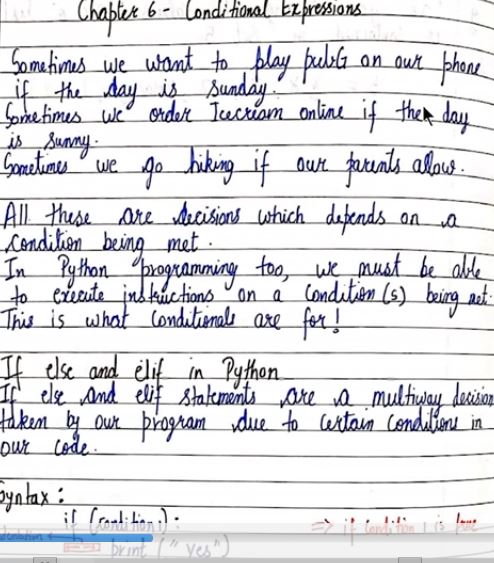 Chapter 6 - Conditional Expressions
Sometimes we want to play pubG on our phone
if the day is Sunday.
Sometimes we order Icecream online if the day
is Sunny.
Sometimes we go hiking if our parents allow.
All these are decisions which depends on a
condition being met.
In Python programming too, we must be able
to execute instructions on a condition(s) being met.
This is what conditionals are for!
If else and elif in Python
If else and elif statements are a multiway decision
taken by our program due to certain conditions in
our code.
Syntax:
if (condition1): => if condition 1 is true
print ("yes")